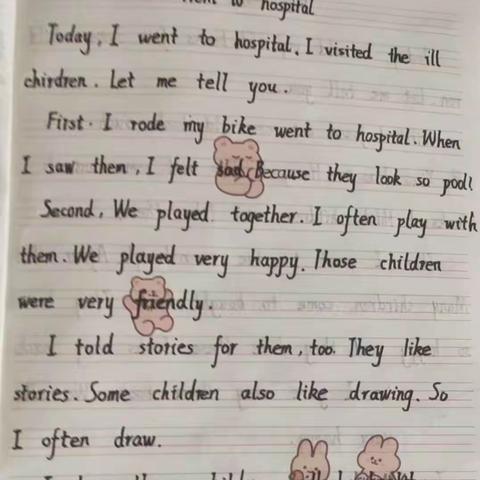 to hospital
Today, I went to hospital. I visited the ill
chirdren. Let me tell you.
First. I rode my bike went to hospital. When
I saw them, I felt sad. Because they look so pool!
Second, We played together. I often play with
them. We played very happy. Those children
were very friendly.
I told stories for them, too. They like
stories. Some children also like drawing. So
I often draw.